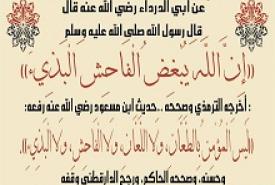 عن أبي الدرداء رضي الله عنه قال
قال رسول الله صلى الله عليه وسلم
«إِنَّ اللَّهَ يُبْغِضُ الْفَاحِشَ الْبَذِيءَ»
: أخرجه الترمذي وصححه ..حديث ابن مسعود رضي الله عنه رفعه:
«لَيْسَ الْمُؤْمِنُ بِالطَّعَّانِ، وَلَا اللَّعَّانِ، وَلَا الْفَاحِشِ، وَلَا الْبَذِيءِ».
وحسنه، وصححه الحاكم، ورجح الدارقطني وقفه